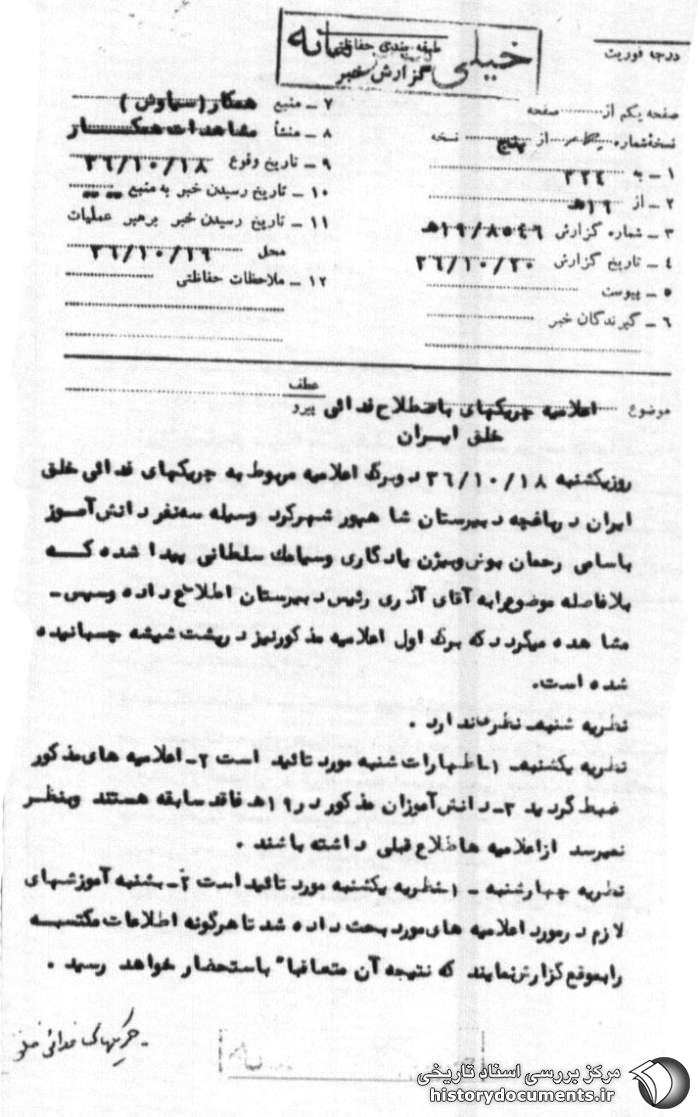 خیلی محرمانه
طبقه بندی حفاظتی
گزارش خبر
درجه فوریت
صفحه یکم از صفحه
نسخه شماره یک از پنج نسخه
۱ ـ به ۳۳۴
۲ ـ از ۱۹ هـ
۳ ـ شماره گزارش ۱۹/۸۵۴۶ هـ
۴ ـ تاریخ گزارش ۳۶/۱۰/۲۰
۵ ـ پیوست
۶ ـ گیرندگان خبر
۷ ـ منبع همکار (سیاوش)
۸ ـ منشأ مشاهدات همکار
۹ ـ تاریخ وقوع ۳۶/۱۰/۱۸
۱۰ ـ تاریخ رسیدن خبر به منبع " "
۱۱ ـ تاریخ رسیدن خبر برهبر عملیات
محل ۳۶/۱۰/۱۹
۱۲ ـ ملاحظات حفاظتی
عطف
پیرو
موضوع اعلامیه چریکهای باصطلاح فدائی
خلق ایران
روز یکشنبه ۳۶/۱۰/۱۸ دو برگ اعلامیه مربوط به چریکهای فدائی خلق
ایران در باغچه دبیرستان شاهپور شهرکرد وسیله سه نفر دانش آموز
باسامی رحمان بیژن یادگاری وسیامك سلطانی پیدا شده که
بلافاصله موضوع رابه آقای آذری رئیس دبیرستان اطلاع داده وسپس ـ
مشاهده میگردد که برگ اول اعلامیه مذکور نیز در پشت شیشه چسبانیده
شده است.
نظریه شنبه. نظری ندارد .
نظریه یکشنبه. ۱ـ اظهارات شنبه مورد تائید است ۲ـ اعلامیه های مذکور
ضبط گردید ۳ـ دانش آموزان مذکور در ۱۹ هـ فاقد سابقه هستند وبنظر
نمیرسد از اعلامیه ها اطلاع قبلی داشته باشند .
نظریه چهارشنبه ـ ۱ـ نظریه یکشنبه مورد تائید است ۲ـ بشنبه آموزشهای
لازم در مورد اعلامیه های مورد بحث داده شد تا هرگونه اطلاعات مکتسبه
رابموقع گزارش نمایند که نتیجه آن متعاقباً باستحضار خواهد رسید .
ـ چریکهای فدائی خلق
مرکز بررسی اسناد تاریخی
historydocuments.ir